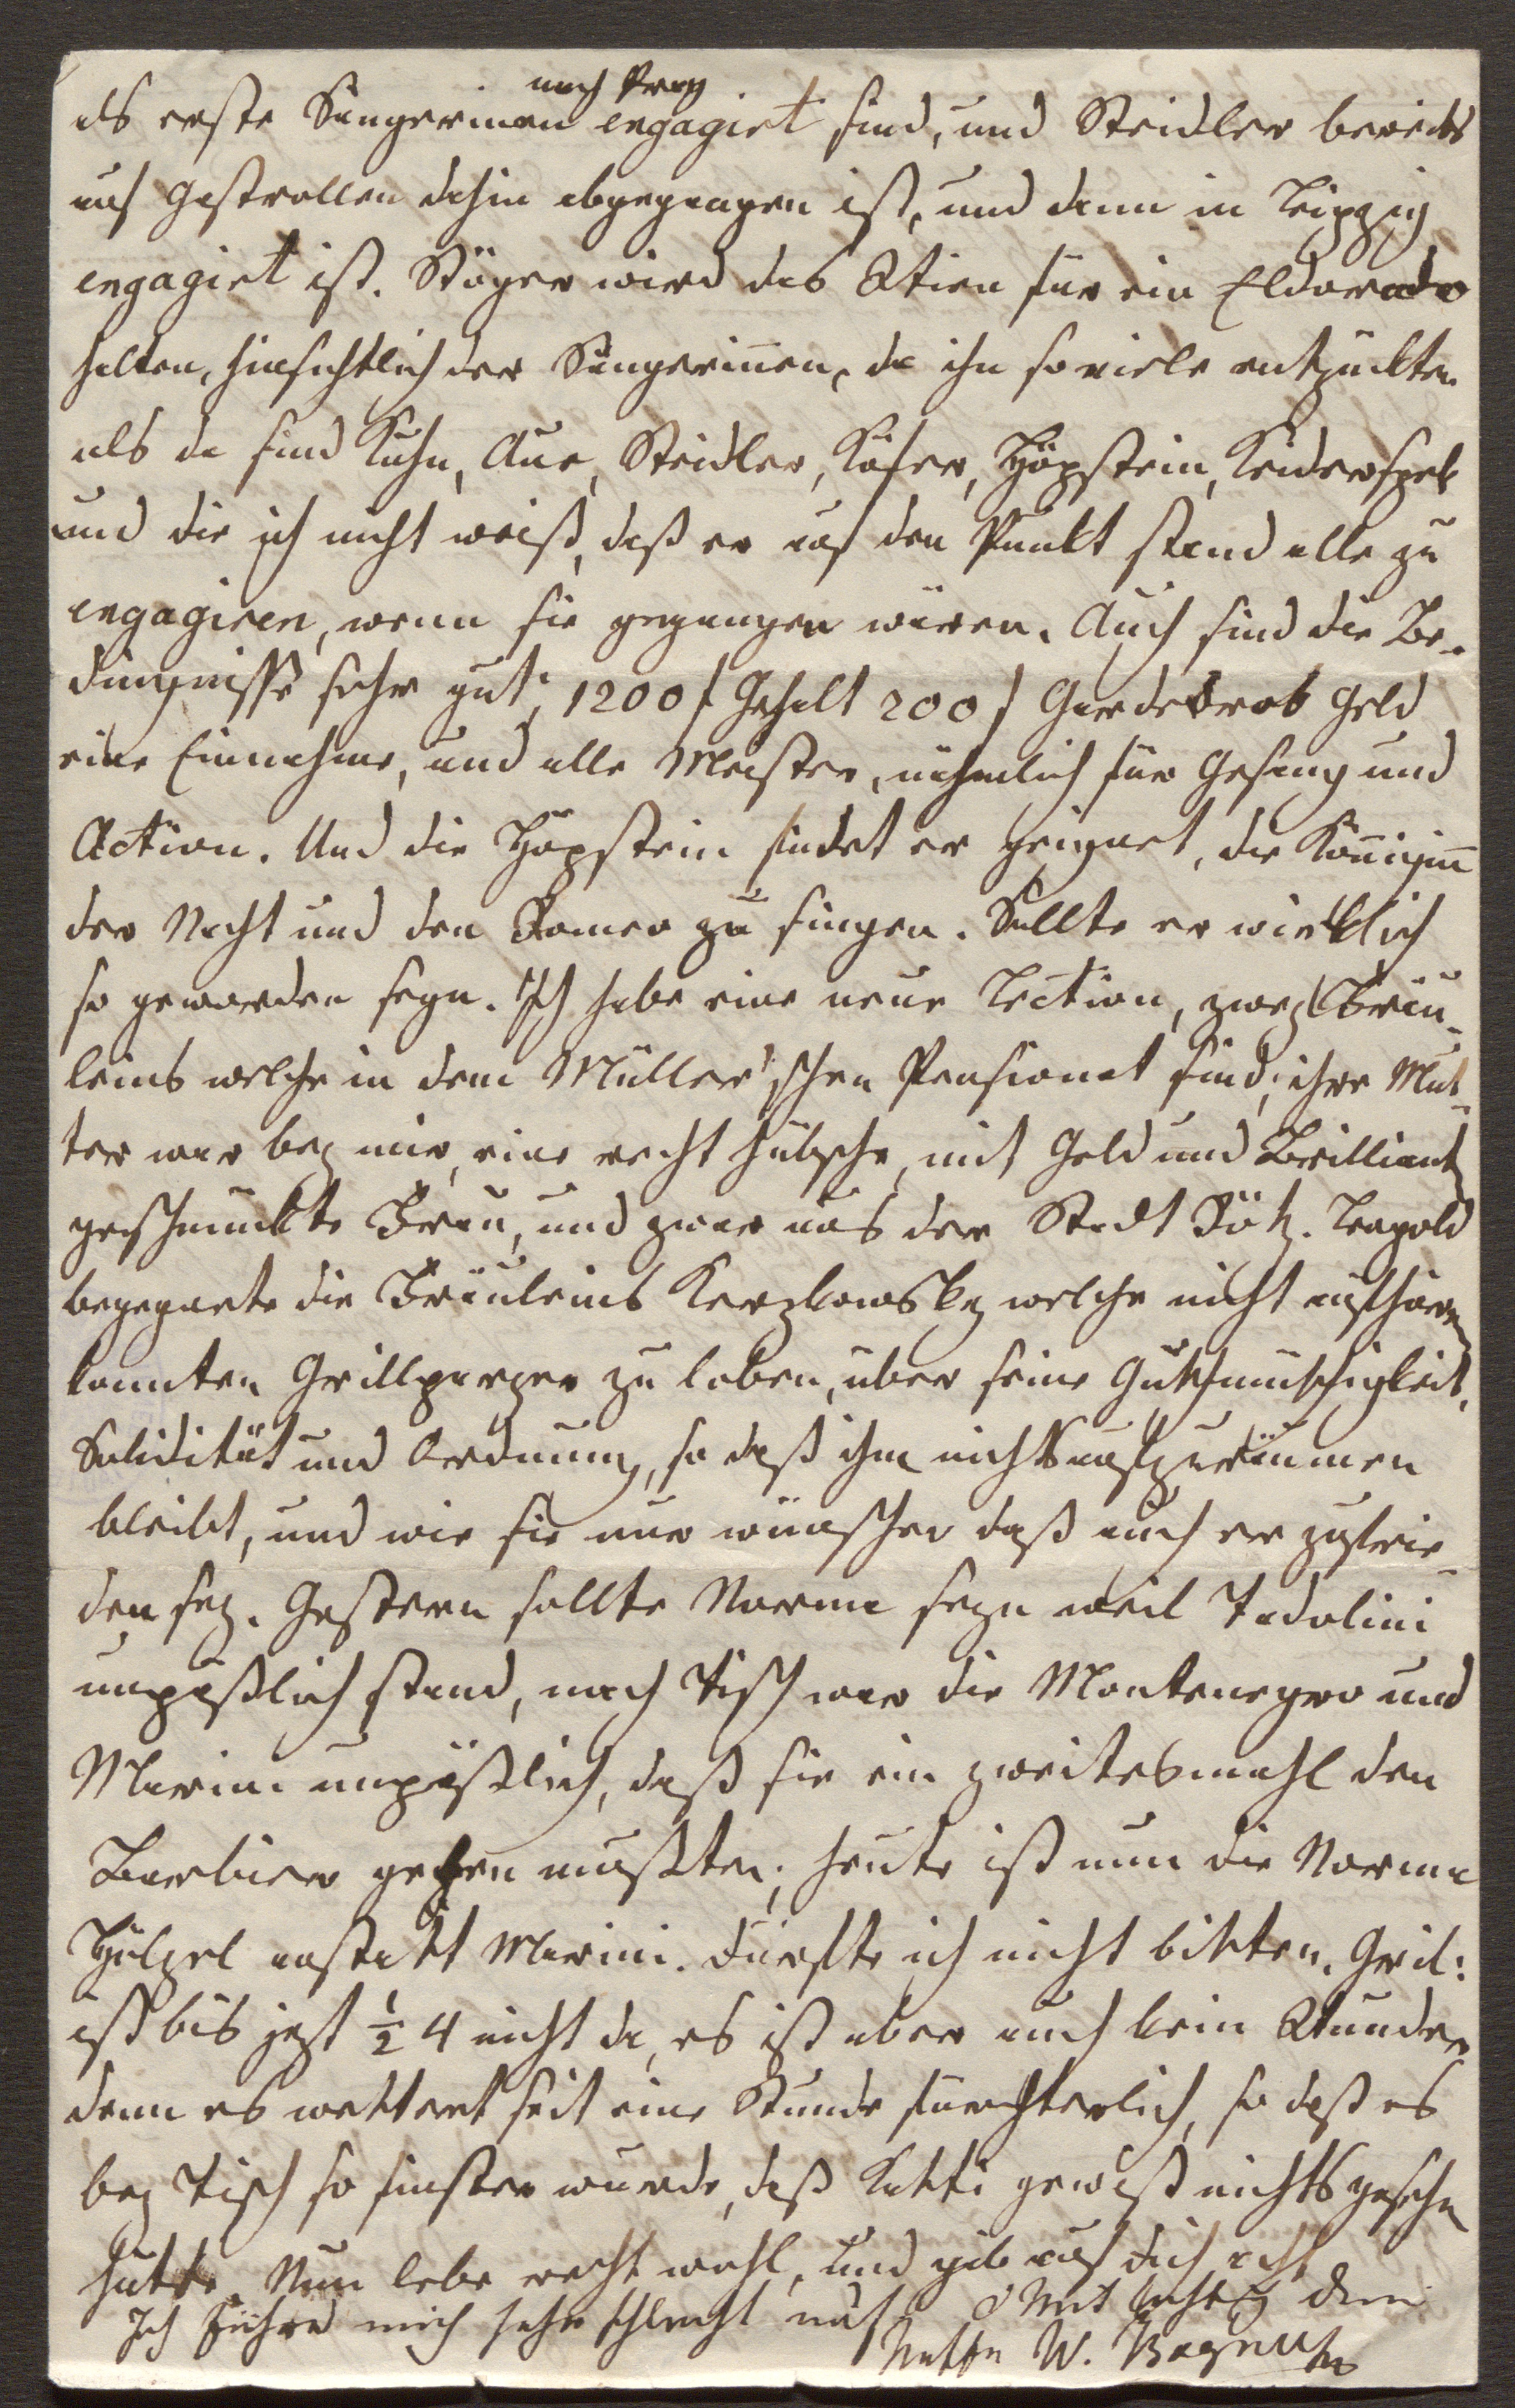 nach Prag
als erste Sängerinen engagirt sind, und Steidler bereits
auf Gastrollen dahin abgegangen ist, und dann in Leipzig
engagirt ist. Stöger wird das Atien für ein Eldorado
halten, hinsichtlich der Sängerinen, da ihn so viele entzückten
als da sind Kuhn, Aue, Steidler, Käfer, Höpstein,
und die ich nicht weiß, daß er auf den Punkt stand alle zu
engagiren, wenn sie gegangen wären. Auch sind die Be-
dingnisse sehr gut, 1200 f Gehalt 200 f Garderob Geld
eine Einnahme, und alle Meister, nähmlich für Gesang und
Action. Und die Höpstein findet er geignet, die Königinn
der Nacht und den Romeo zu singen. Sollte er wirklich
so geworden seyn. Ich habe eine neue Lection, zwey Fräu-
leins welche in dem Müller'schen Pensionat sind, ihre Mut-
ter war bey mir, eine recht hübsche, mit Gold und Brilliant
geschmückte Frau, und zwar aus der Stadt. Leopold
begegnete die Fräuleins welche nicht aufhören
konnten Grillparzer zu loben, über seine Gutherzigkeit,
Solidität und Ordnung, so daß ihm nichts aufzuräumen
bleibt, und wie sie nur wünschen daß auch er zufrie-
den sey. Gestern sollte Norma seyn weil Tadolini
unpäßlich stand, nach Tisch war die Montenegro und
Marini unpäßlich, daß sie ein zweitesmahl den
Barbier geben mußten, heute ist nun die Norma
Hölzel anstatt Marini. Dürfte ich nicht bitten. Gril:
ist bis jezt ½ 4 nicht da, es ist aber auch kein Wunder
denn es wettert seit eine Stunde fürchterlich, so daß es
bey Tisch so finster wurde, daß Katti gewiß nichts gesehn
hätte. Nun lebe recht wohl, und gib auf dich acht
Ich führe mich sehr schlecht auf. Mit Achtung dein
Netti W. Bogner